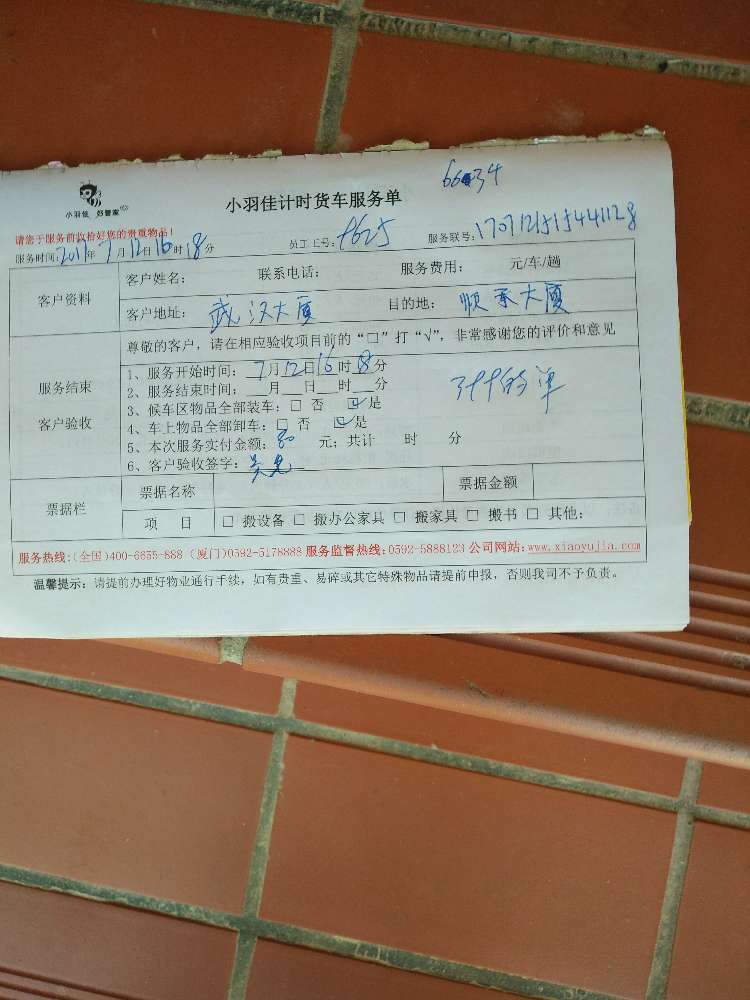 小羽佳 好管家
小羽佳计时货车服务单
请您于服务前收拾好您的贵重物品!
服务时间:2017年7月12日16时18分 员工工号: 9625 服务联号:1707121515441128
客户资料
客户姓名: 联系电话: 服务费用: 元/车/趟
客户地址: 武汉大厦 目的地: 顺承大厦
服务结束
客户验收
尊敬的客户,请在相应验收项目前的“□”打“√”,非常感谢您的评价和意见
1、服务开始时间: 7月12日16时18分
2、服务结束时间: 月 日 时 分
3、候车区物品全部装车: □ 否 ☑是
4、车上物品全部卸车: □ 否 ☑是
5、本次服务实付金额: 80 元; 共计 时 分
6、客户验收签字:
的单
票据栏
票据名称 票据金额
项 目 □ 搬设备 □ 搬办公家具 □ 搬家具 □ 搬书 □ 其他:
服务热线:(全国)400-6655-888 (厦门)0592-5178888 服务监督热线:0592-5888123 公司网站:www.xiaoyujia.com
温馨提示: 请提前办理好物业通行手续, 如有贵重、易碎或其它特殊物品请提前申报, 否则我司不予负责。